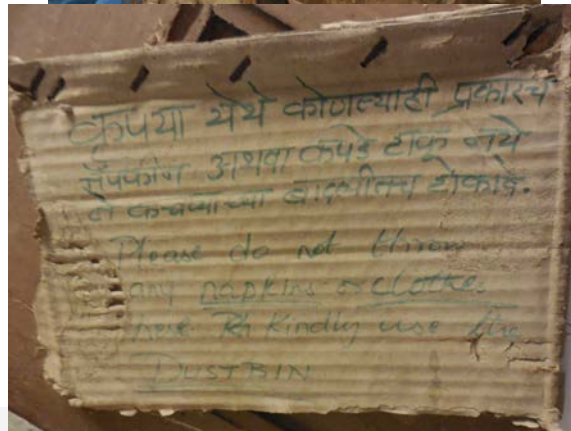 कृपया येथे कोणत्याही प्रकारचे
नॅपकीन अथवा कपडे टाकू नये
ते कचऱ्याच्या बादलीतच टाकावे.
Please do not throw
any napkins or clothes
here. Kindly use the
DUSTBIN